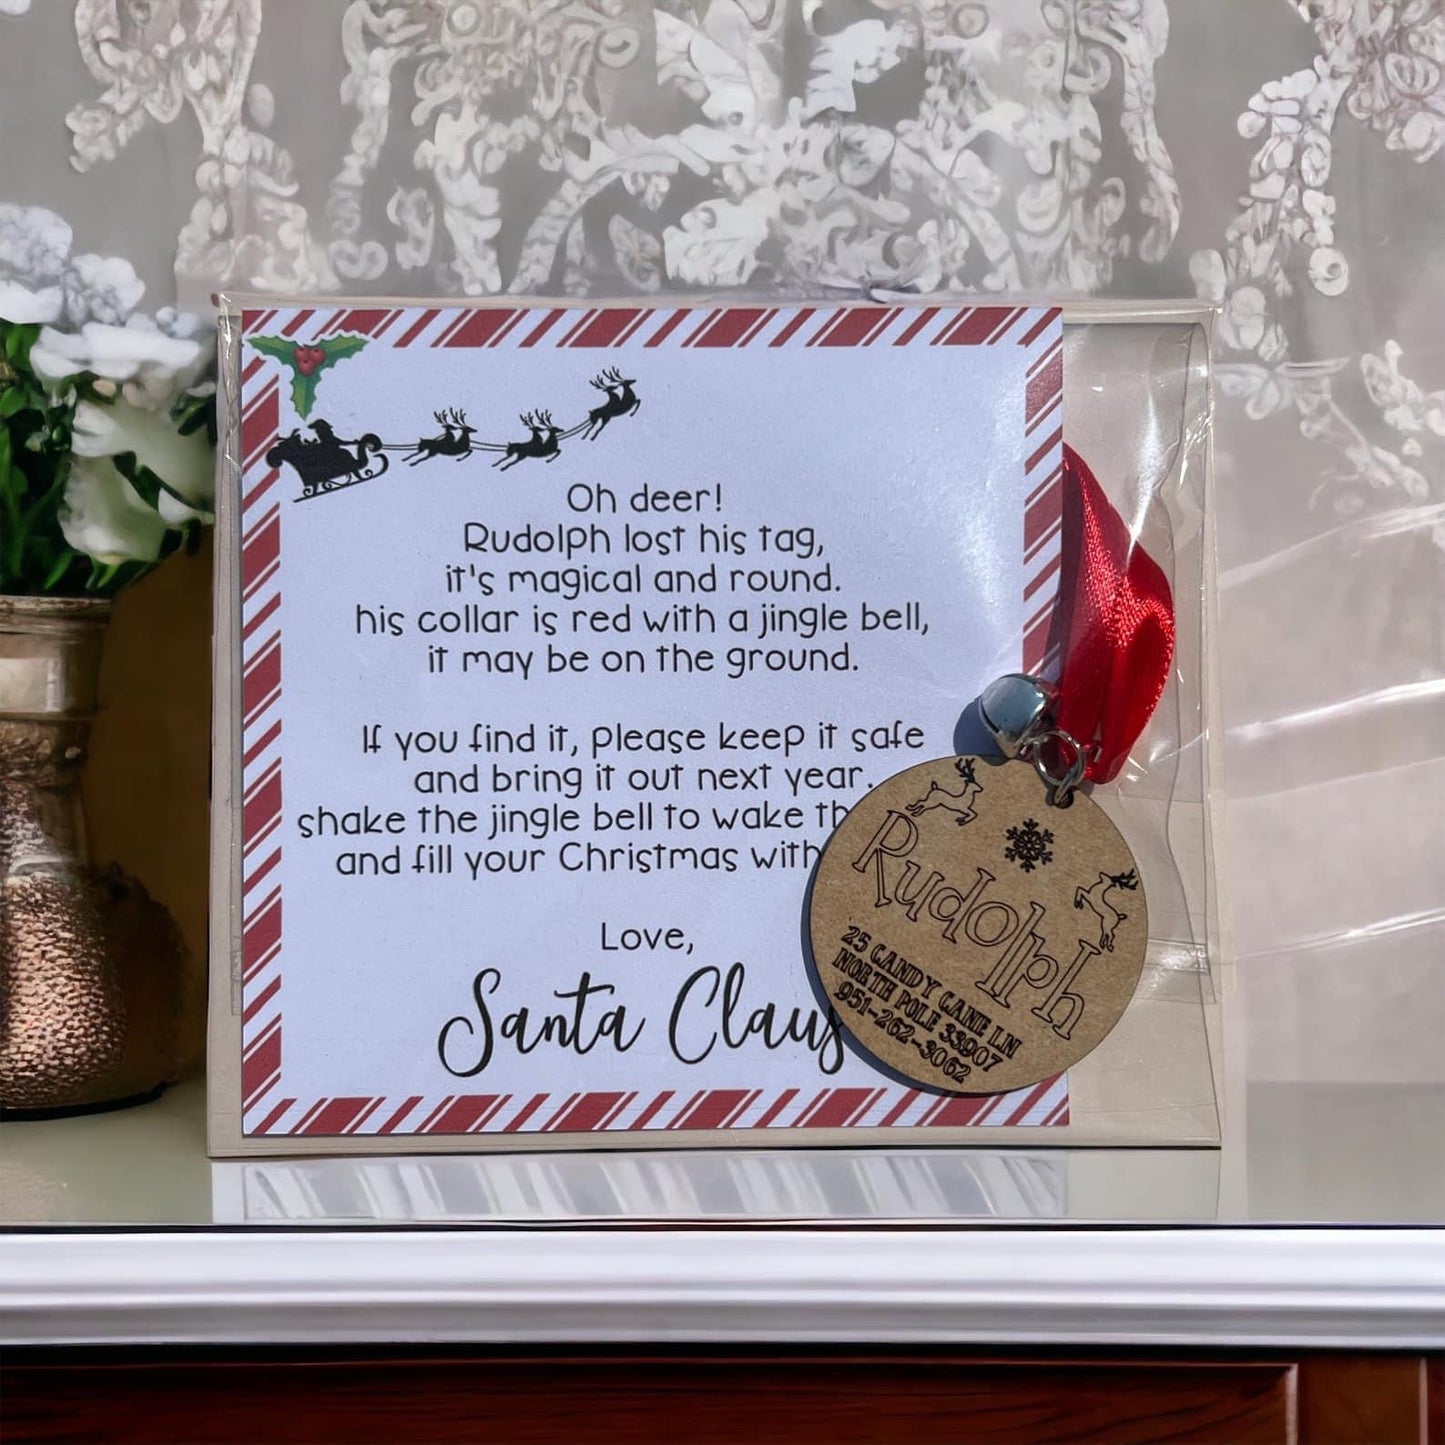 Oh deer!
Rudolph lost his tag,
it's magical and round.
his collar is red with a jingle bell,
it may be on the ground.
If you find it, please keep it safe
and bring it out next year.
shake the jingle bell to wake
and fill your Christmas with
Love,
Santa Claus
Rudolph
25 CANDY CANE LN
NORTH POLE 33907
951-262-3062